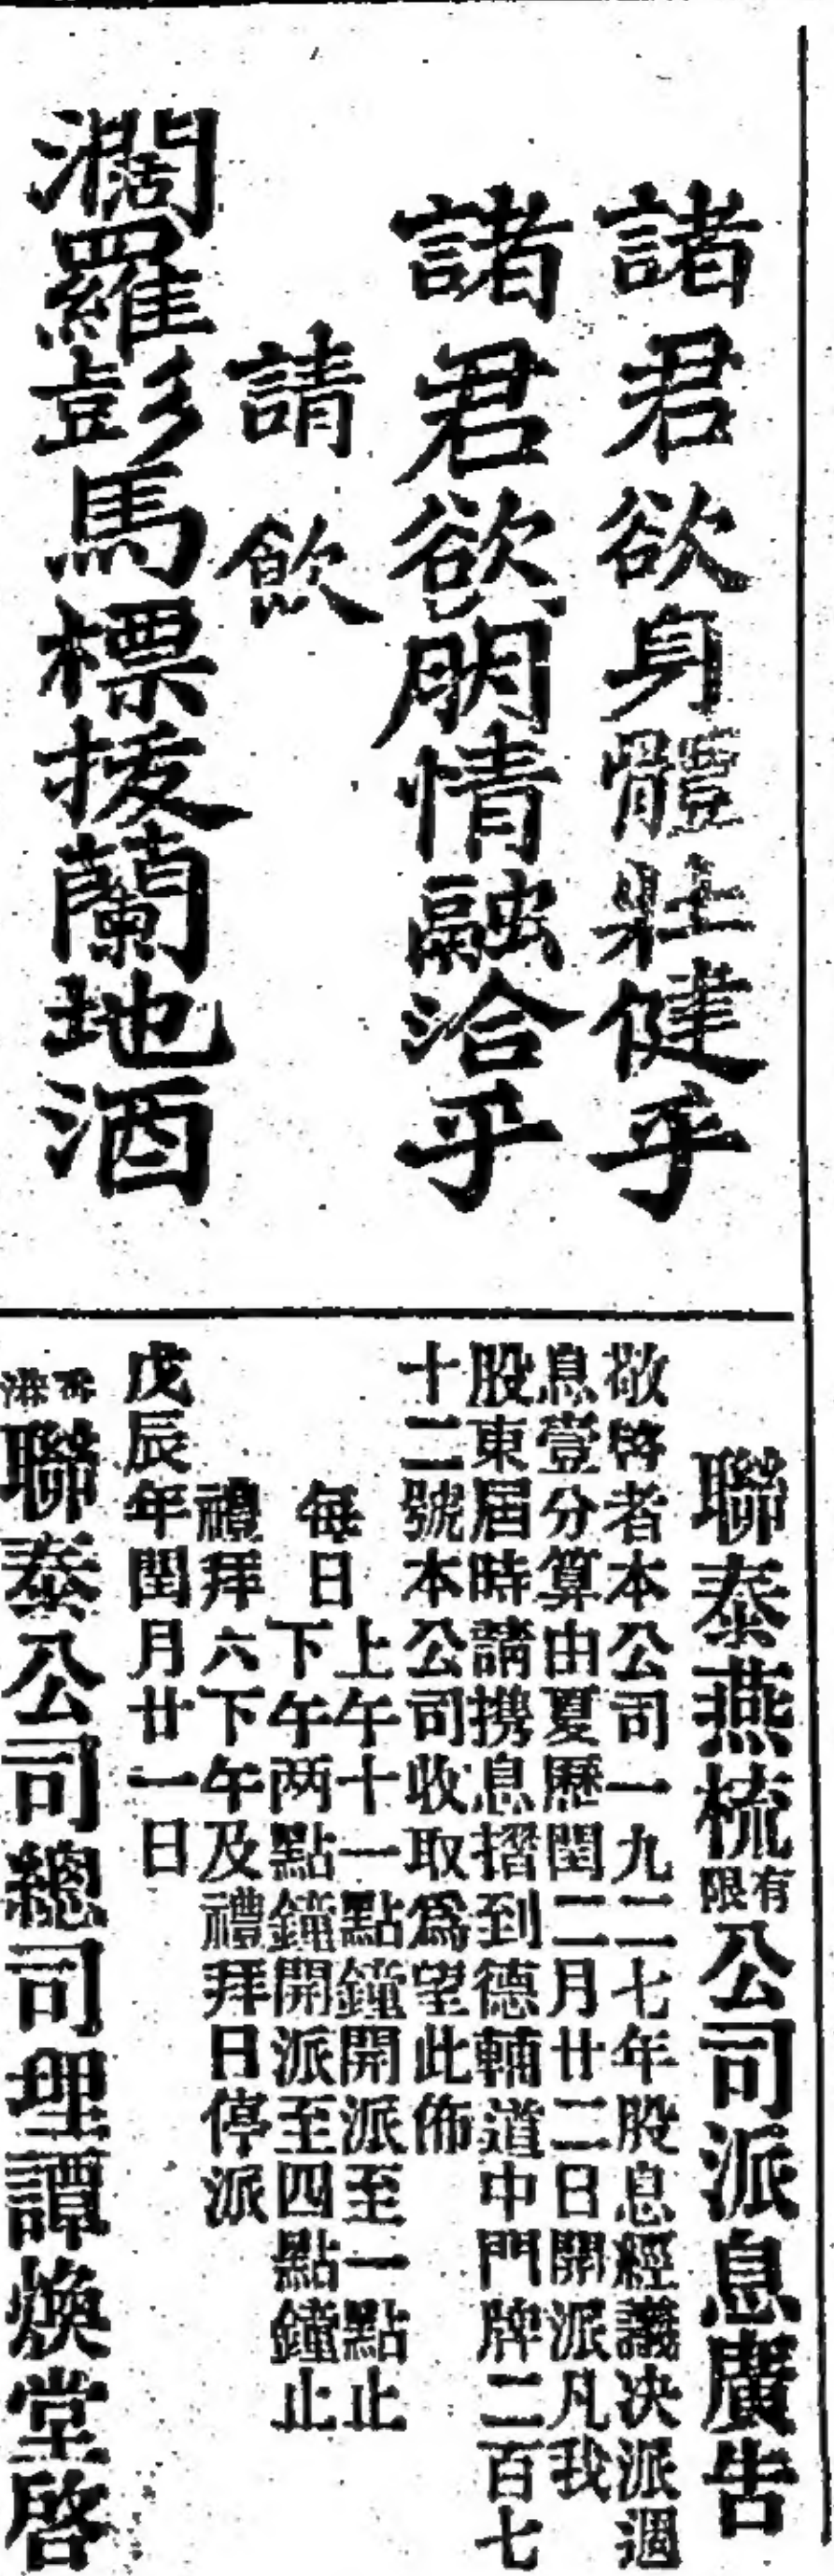 諸君欲身體壯健乎
諸君欲朋情融洽乎
請飲
濶羅彭馬標拔蘭地酒
聯泰燕梳有限公司派息廣告
敬啓者本公司一九二七年股息經議决派週
息壹分算由夏歷閏二月廿二日開派凡我
股東届時請携息摺到德輔道中門牌二百七
十二號本公司收取爲望此佈
每日
上午十一點鐘開派至一點止
下午两點鐘開派至四點鐘止
禮拜六下午及禮拜日停派
戊辰年閏月廿一日
香港聯泰公司總司理譚煥堂啓